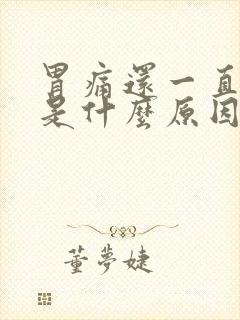 胃痛還一直
是什麼原因
董夢婕